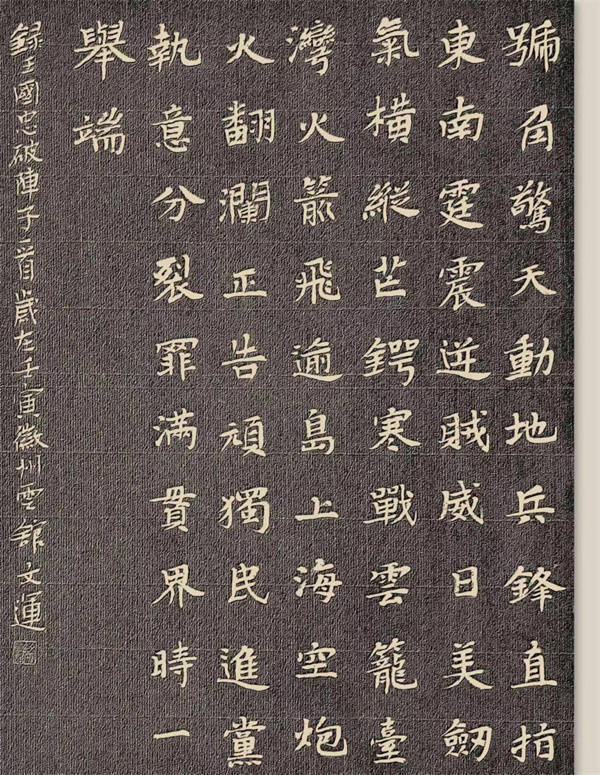 號角驚天動地兵鋒直指
東南霆震迸賊威日美劍
氣橫縱芒鍔寒戰雲籠臺
灣火箭飛逾島上海空炮
火翻瀾正告頑獨民進黨
執意分裂罪滿貫界時一
舉端
錄王國忠破陣子一首歲在壬寅徽州雲館文運